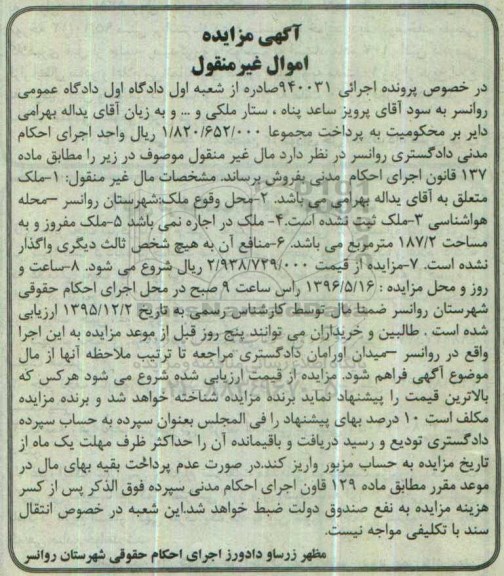 آگهی مزایده
اموال غیرمنقول
در خصوص پرونده اجرائی ۹۴۰۰۳۱صادره از شعبه اول دادگاه اول دادگاه عمومی
روانسر به سود آقای پرویز ساعد پناه ، ستار ملکی و ... و به زیان آقای یداله بهرامی
دایر بر محکومیت به پرداخت مجموعا ۱/۸۲۰/۶۵۲/۰۰۰ ریال واحد اجرای احکام
مدنی دادگستری روانسر در نظر دارد مال غیر منقول موصوف در زیر را مطابق ماده
۱۳۷ قانون اجرای احکام مدنی بفروش برساند. مشخصات مال غیر منقول: ۱-ملک
متعلق به آقای یداله بهرامی می باشد. ۲-محل وقوع ملک:شهرستان روانسر –محله
هواشناسی ۳-ملک ثبت نشده است.۴- ملک در اجاره نمی باشد ۵-ملک مفروز و به
مساحت ۱۸۷/۲ مترمربع می باشد. ۶-منافع آن به هیچ شخص ثالث دیگری واگذار
نشده است. ۷-مزایده از قیمت ۲/۹۳۸/۷۳۹/۰۰۰ ریال شروع می شود. ۸-ساعت و
روز و محل مزایده : ۱۳۹۶/۵/۱۶ راس ساعت ۹ صبح در محل اجرای احکام حقوقی
شهرستان روانسر ضمنا مال توسط کارشناس رسمی به تاریخ ۱۳۹۵/۱۲/۲ ارزیابی
شده است . طالبین و خریداران می توانند پنج روز قبل از موعد مزایده به این اجرا
واقع در روانسر –میدان اورامان دادگستری مراجعه تا ترتیب ملاحظه آنها از مال
موضوع آگهی فراهم شود. مزایده از قیمت ارزیابی شده شروع می شود هرکس که
بالاترین قیمت را پیشنهاد نماید برنده مزایده شناخته خواهد شد و برنده مزایده
مکلف است ۱۰ درصد بهای پیشنهاد را فی المجلس بعنوان سپرده به حساب سپرده
دادگستری تودیع و رسید دریافت و باقیمانده آن را حداکثر ظرف مهلت یک ماه از
تاریخ مزایده به حساب مزبور واریز کند.در صورت عدم پرداخت بقیه بهای مال در
موعد مقرر مطابق ماده ۱۲۹ قاون اجرای احکام مدنی سپرده فوق الذکر پس از کسر
هزینه مزایده به نفع صندوق دولت ضبط خواهد شد.این شعبه در خصوص انتقال
سند با تکلیفی مواجه نیست.
مظهر زرساو دادورز اجرای احکام حقوقی شهرستان روانسر